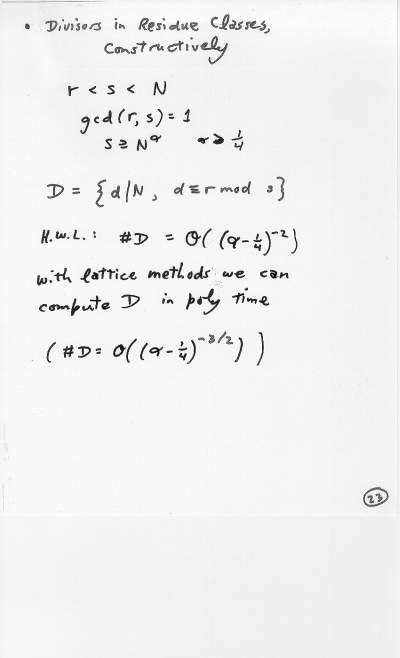 • Divisors in Residue Classes,
Constructively
r < s < N
gcd(r, s) = 1
s ≥ N^α α > 1/4
D = { d|N, d ≡ r mod s }
H.W.L.: #D = O((α-1/4)^-2)
with lattice methods we can
compute D in poly time
( #D = O((α-1/4)^-3/2) )
23